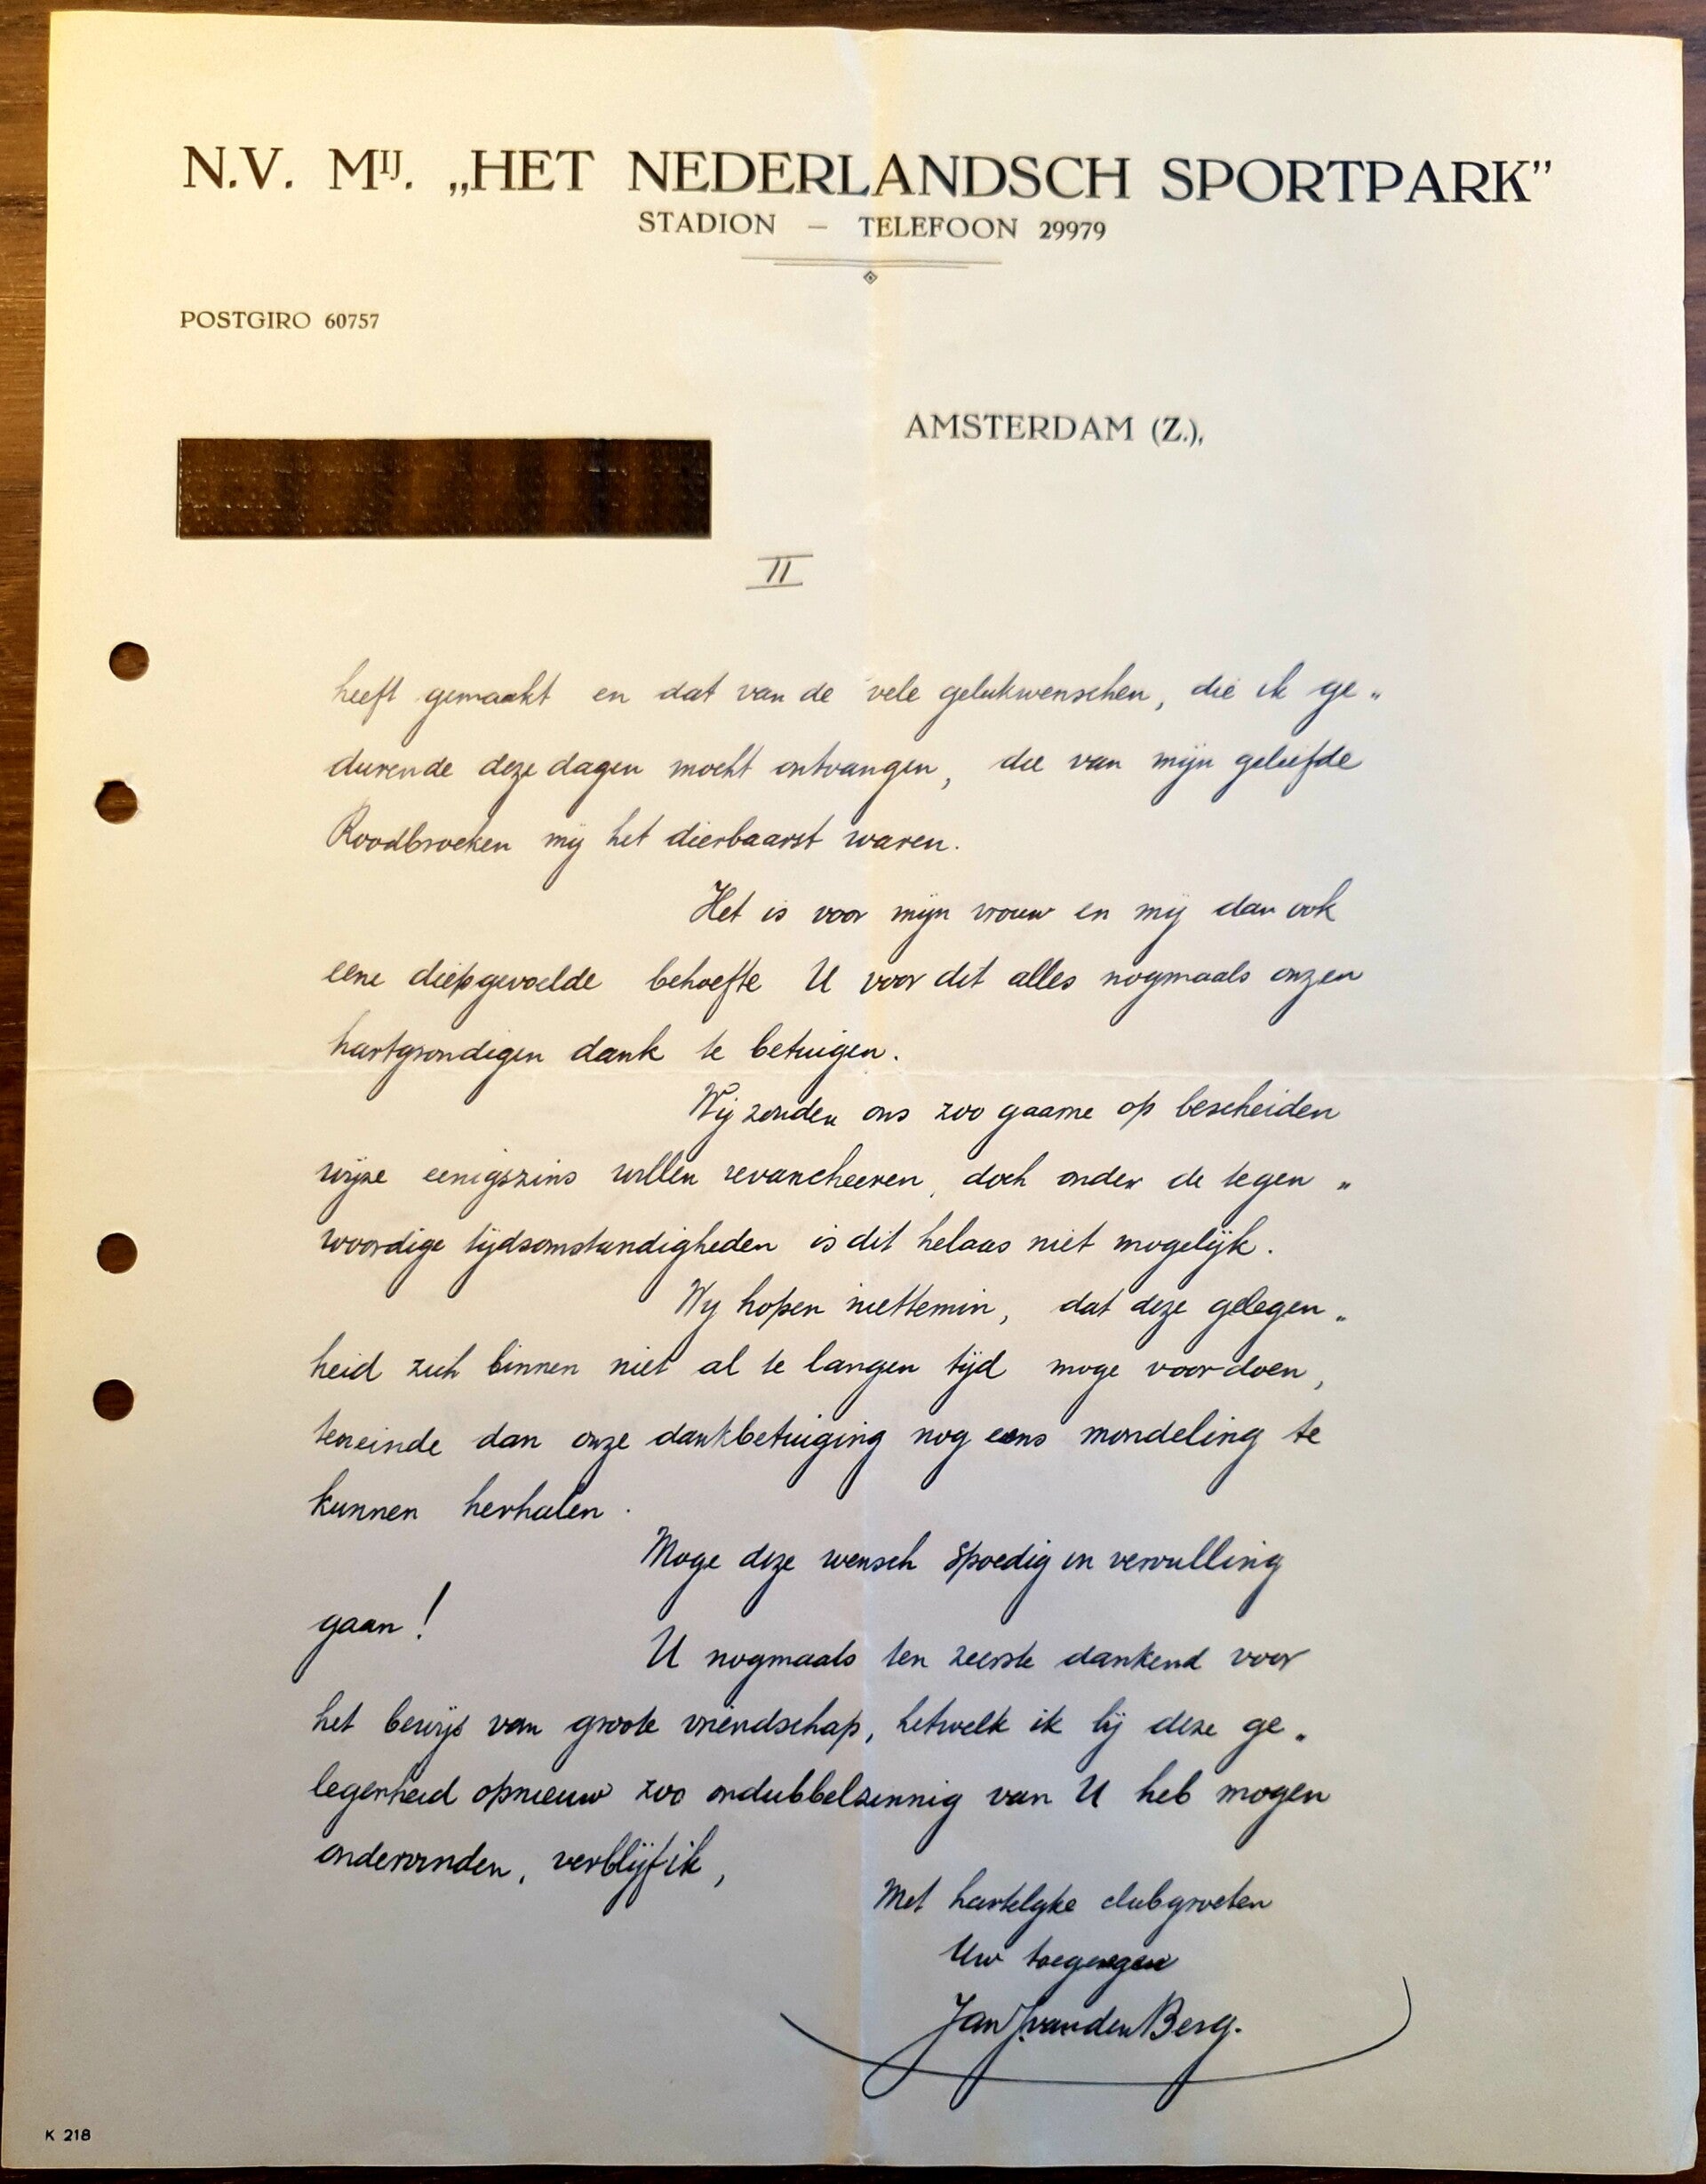 N.V. MIJ. „HET NEDERLANDSCH SPORTPARK”
STADION — TELEFOON 29979
POSTGIRO 60757
AMSTERDAM (Z.),
II
heeft gemaakt en dat van de vele gelukwenschen, die ik ge„
durende deze dagen mocht ontvangen, die van mijn geliefde
Roodbroeken mij het dierbaarst waren.
Het is voor mijn vrouw en mij dan ook
eene diepgevoelde behoefte U voor dit alles nogmaals onzen
hartgrondigen dank te betuigen.
Wij zouden ons zoo gaarne op bescheiden
wijze eenigszins willen revancheeren, doch onder de tegen„
woordige tijdsomstandigheden is dit helaas niet mogelijk.
Wij hopen niettemin, dat deze gelegen„
heid zich binnen niet al te langen tijd moge voordoen,
teneinde dan onze dankbetuiging nog eens mondeling te
kunnen herhalen.
Moge deze wensch spoedig in vervulling
gaan!
U nogmaals ten zeerste dankend voor
het bewijs van groote vriendschap, hetwelk ik bij deze ge„
legenheid opnieuw zoo ondubbelzinnig van U heb mogen
ondervinden, verblijf ik,
Met hartelijke clubgroeten
Uw toegenegen
Jan J. van den Berg.
K 218